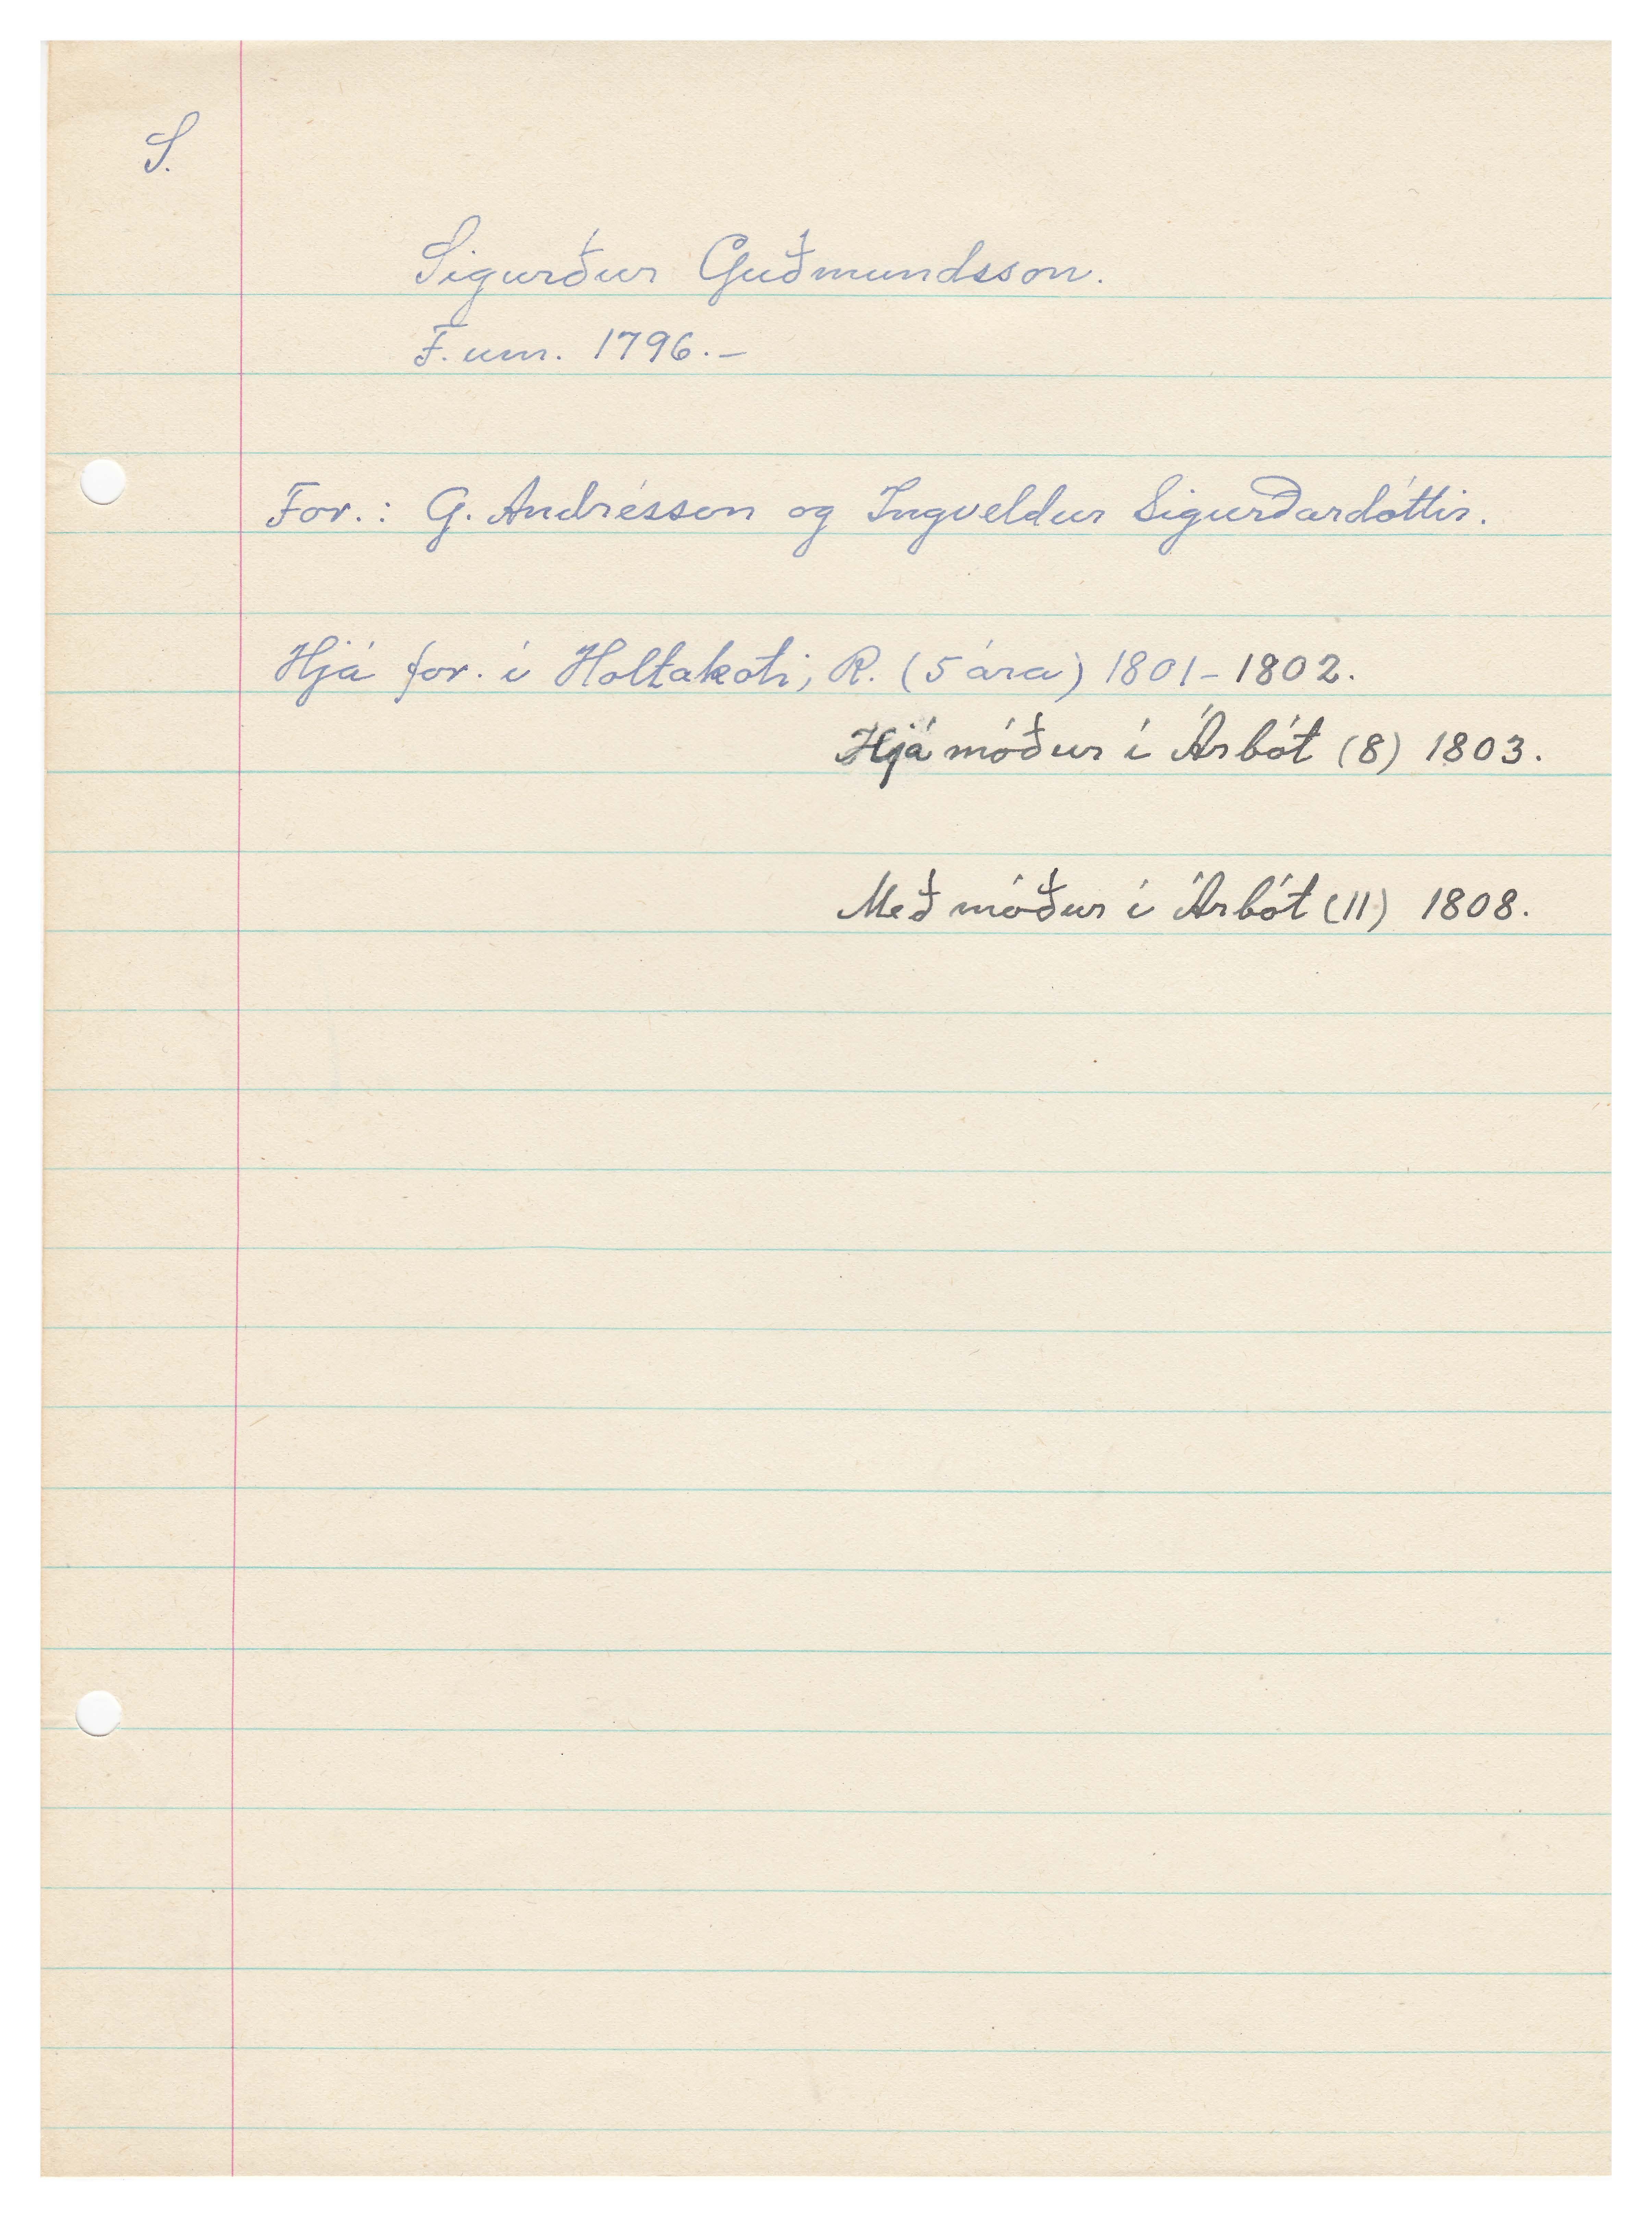 S.
Sigurður Guðmundsson.
F. um. 1796.-
For.: G. Andrésson og Ingveldur Sigurðardóttir.
Hjá for. í Holtakoti, R. (5 ára) 1801-1802.
Hjá móður í Árbót (8) 1803.
Með móður í Árbót (11) 1808.